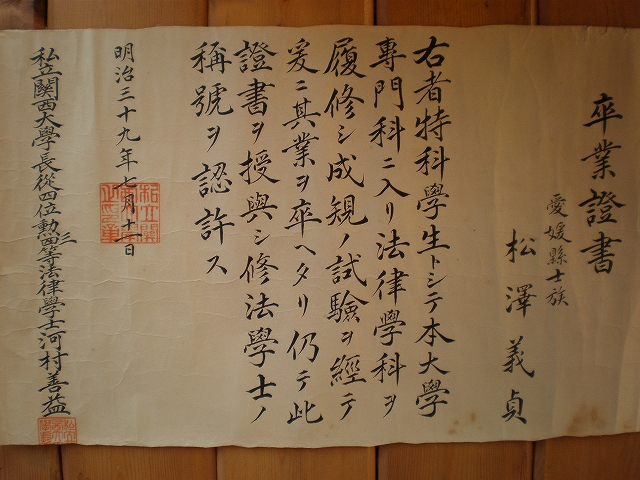 卒業證書
愛媛縣士族
松澤義貞
右者特科學生トシテ本大學
專門科ニ入リ法律學科ヲ
履修シ成規ノ試驗ヲ經テ
爰ニ其業ヲ卒ヘタリ仍テ此
證書ヲ授與シ修法學士ノ
稱號ヲ認許ス
明治三十九年十七月十一日
私立関西大學長從四位勳三等法律學士河村善益